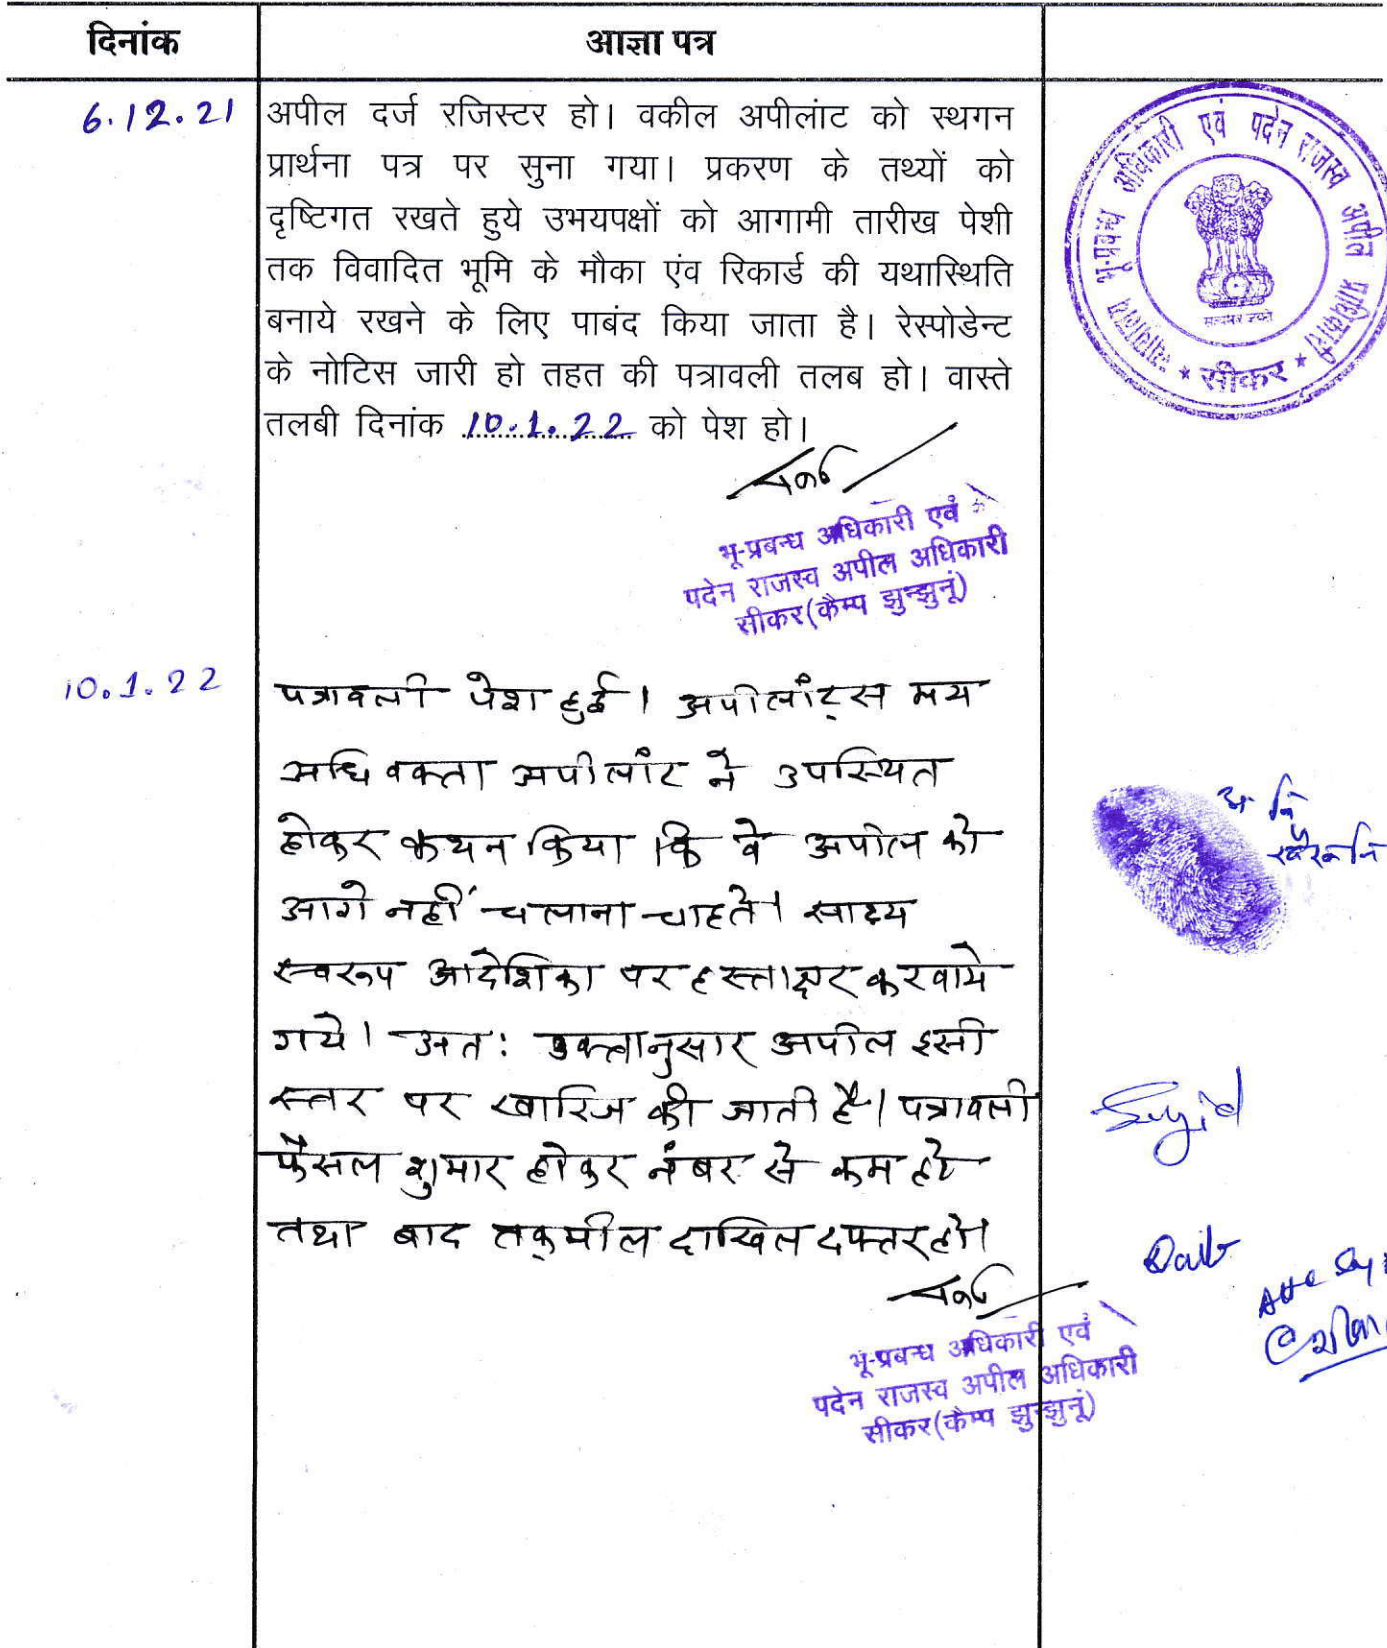 दिनांक
आज्ञा पत्र
6.12.21
अपील दर्ज रजिस्टर हो। वकील अपीलांट को स्थगन
प्रार्थना पत्र पर सुना गया। प्रकरण के तथ्यों को
दृष्टिगत रखते हुये उभयपक्षों को आगामी तारीख पेशी
तक विवादित भूमि के मौका एंव रिकार्ड की यथास्थिति
बनाये रखने के लिए पाबंद किया जाता है। रेस्पोडेन्ट
के नोटिस जारी हो तहत की पत्रावली तलब हो। वास्ते
तलबी दिनांक 10.1.22 को पेश हो।
भू-प्रबन्ध अधिकारी एवं पदेन राजस्व अपील प्राधिकारी
सत्यमेव जयते
* सीकर *
भू-प्रबन्ध अधिकारी एवं
पदेन राजस्व अपील अधिकारी
सीकर(कैम्प झुन्झुनूं)
10.1.22
पत्रावली पेश हुई। अपीलांट्स मय
अधिवक्ता अपीलांट ने उपस्थित
होकर कथन किया कि वे अपील को
आगे नहीं चलाना चाहते। साक्ष्य
स्वरूप आदेशिका पर हस्ताक्षर करवाये
गये। अत: उक्तानुसार अपील इसी
स्तर पर खारिज की जाती है। पत्रावली
फैसल शुमार होकर नंबर से कम होवे
तथा बाद तकमील दाखिल दफ्तर हो।
भू-प्रबन्ध अधिकारी एवं
पदेन राजस्व अपील अधिकारी
सीकर(कैम्प झुन्झुनूं)